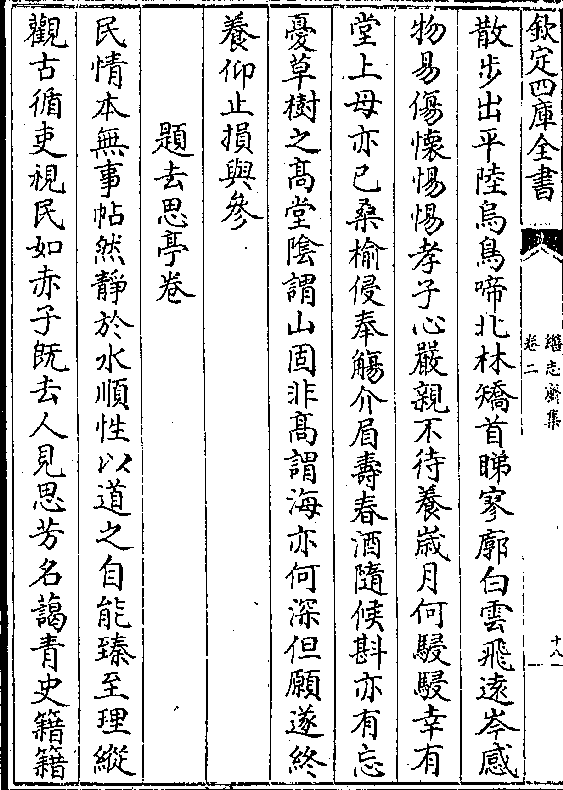 欽定四庫全書
繼志齋集
卷二
十八
散步出平陸烏鳥啼北林矯首睇寥廓白雲飛遠岑感
物易傷懷惕惕孝子心嚴親不待養歳月何駸駸幸有
堂上母亦已桑榆侵奉觴介眉壽春酒隨候斟亦有忘
憂草樹之髙堂隂謂山固非髙謂海亦何深但願遂終
養仰止損與參
題去思亭卷
民情本無事帖然靜於水順性以道之自能臻至理縱
觀古循吏視民如赤子既去人見思芳名藹青史籍籍